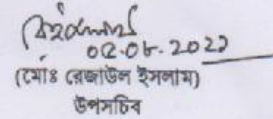 ০২.০৮.২০২২
(মোঃ রেজাউল ইসলাম)
উপসচিব